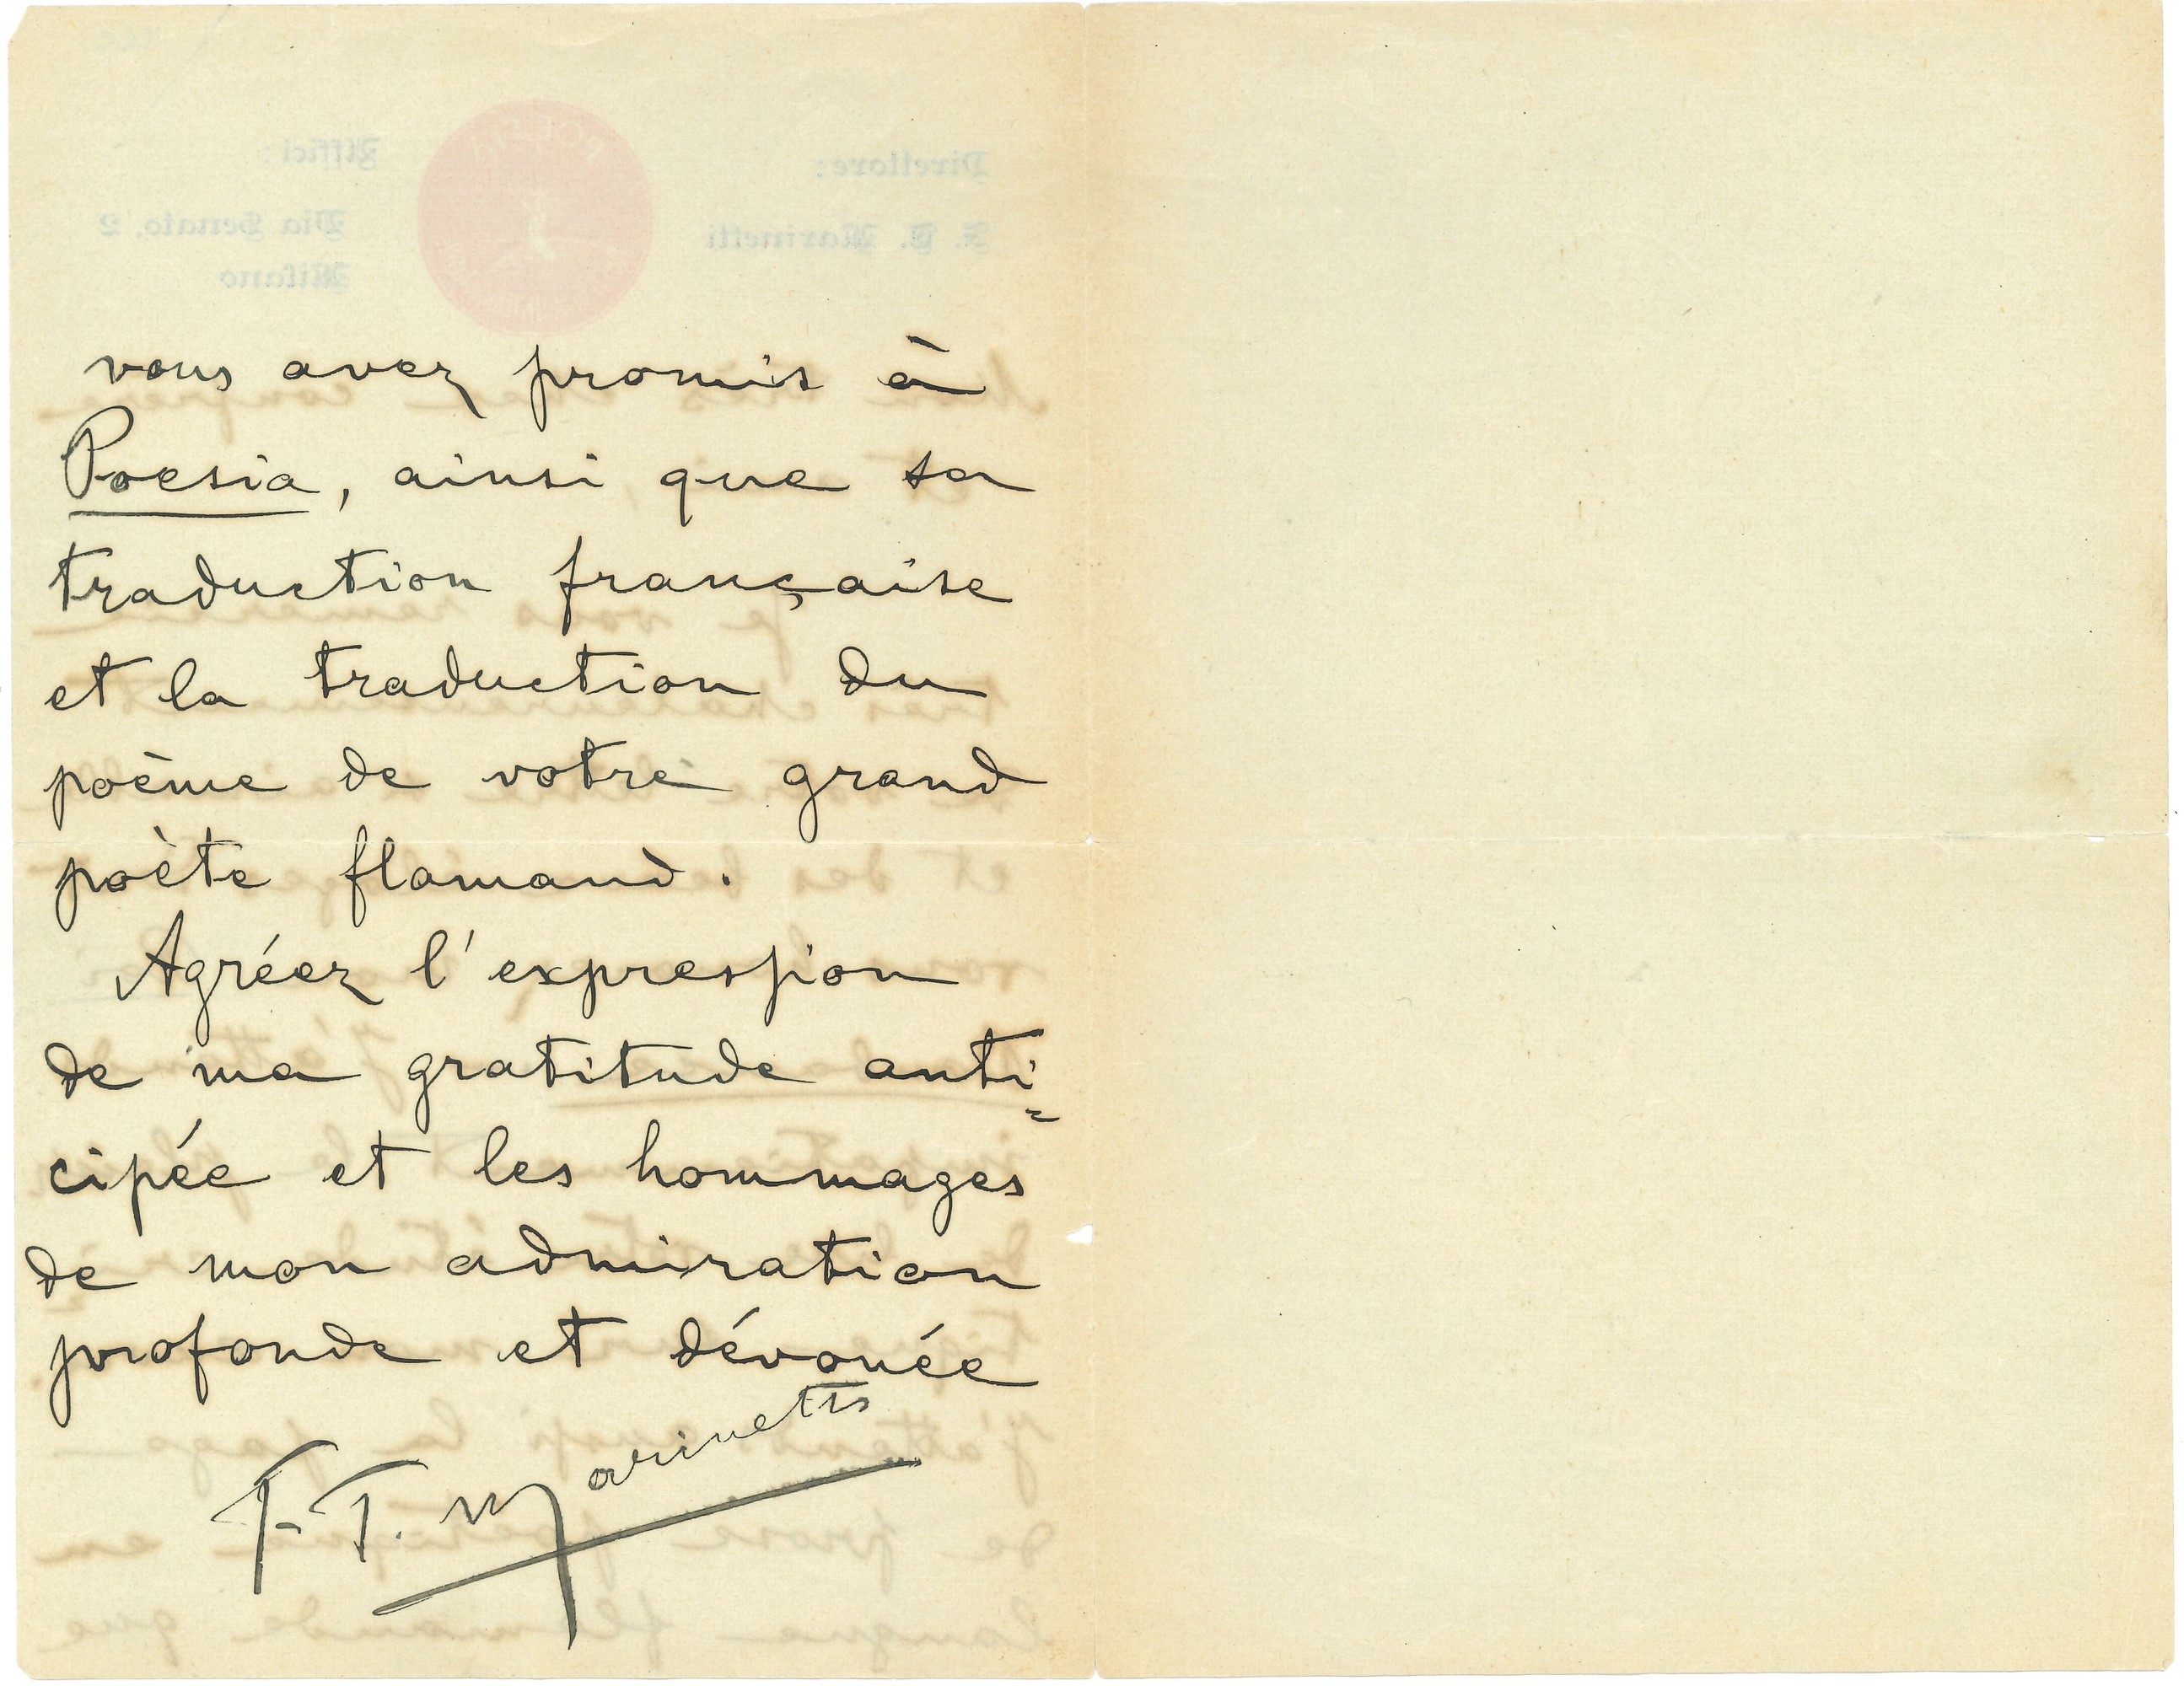 vous avez promis à
Poesia, ainsi que sa
traduction française
et la traduction du
poème de votre grand
poète flamand.
Agréez l'expression
de ma gratitude anti=
cipée et les hommages
de mon admiration
profonde et dévouée
F. T. Marinetti
Direttore:
F. T. Marinetti
Uffici:
Via Senato, 2
Milano